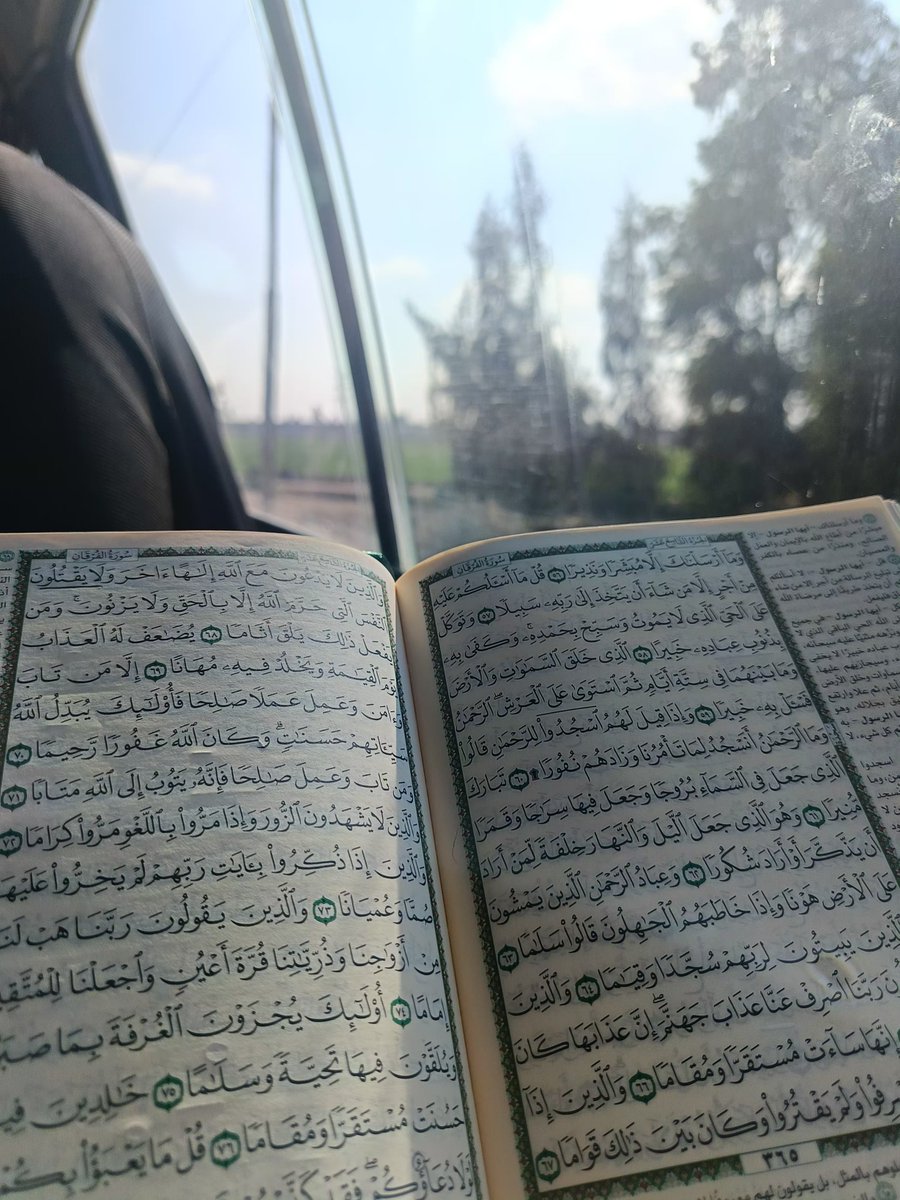 سُورَةُ الفُرْقَانِ
وَمَآ أَرْسَلْنَٰكَ إِلَّا مُبَشِّرًا وَنَذِيرًا ٥٦ قُلْ مَآ أَسْـَٔلُكُمْ عَلَيْهِ
مِنْ أَجْرٍ إِلَّا مَن شَآءَ أَن يَتَّخِذَ إِلَىٰ رَبِّهِۦ سَبِيلًا ٥٧ وَتَوَكَّلْ
عَلَى ٱلْحَىِّ ٱلَّذِى لَا يَمُوتُ وَسَبِّحْ بِحَمْدِهِۦ وَكَفَىٰ بِهِۦ
بِذُنُوبِ عِبَادِهِۦ خَبِيرًا ٥٨ ٱلَّذِى خَلَقَ ٱلسَّمَٰوَٰتِ وَٱلْأَرْضَ
وَمَا بَيْنَهُمَا فِى سِتَّةِ أَيَّامٍ ثُمَّ ٱسْتَوَىٰ عَلَى ٱلْعَرْشِ ٱلرَّحْمَٰنُ
فَسْـَٔلْ بِهِۦ خَبِيرًا ٥٩ وَإِذَا قِيلَ لَهُمُ ٱسْجُدُوا۟ لِلرَّحْمَٰنِ قَالُوا۟
وَمَا ٱلرَّحْمَٰنُ أَنَسْجُدُ لِمَا تَأْمُرُنَا وَزَادَهُمْ نُفُورًا ۩ ٦٠ تَبَارَكَ
ٱلَّذِى جَعَلَ فِى ٱلسَّمَآءِ بُرُوجًا وَجَعَلَ فِيهَا سِرَٰجًا وَقَمَرًا
مُّنِيرًا ٦١ وَهُوَ ٱلَّذِى جَعَلَ ٱلَّيْلَ وَٱلنَّهَارَ خِلْفَةً لِّمَنْ أَرَادَ
أَن يَذَّكَّرَ أَوْ أَرَادَ شُكُورًا ٦٢ وَعِبَادُ ٱلرَّحْمَٰنِ ٱلَّذِينَ يَمْشُونَ
عَلَى ٱلْأَرْضِ هَوْنًا وَإِذَا خَاطَبَهُمُ ٱلْجَٰهِلُونَ قَالُوا۟ سَلَٰمًا ٦٣
وَٱلَّذِينَ يَبِيتُونَ لِرَبِّهِمْ سُجَّدًا وَقِيَٰمًا ٦٤ وَٱلَّذِينَ
رَبَّنَا ٱصْرِفْ عَنَّا عَذَابَ جَهَنَّمَ إِنَّ عَذَابَهَا كَانَ
إِنَّهَا سَآءَتْ مُسْتَقَرًّا وَمُقَامًا ٦٦ وَٱلَّذِينَ إِذَآ
وَلَمْ يَقْتُرُوا۟ وَكَانَ بَيْنَ ذَٰلِكَ قَوَامًا ٦٧
٣٦٥
سُورَةُ الفُرْقَانِ
وَٱلَّذِينَ لَا يَدْعُونَ مَعَ ٱللَّهِ إِلَٰهًا ءَاخَرَ وَلَا يَقْتُلُونَ
ٱلنَّفْسَ ٱلَّتِى حَرَّمَ ٱللَّهُ إِلَّا بِٱلْحَقِّ وَلَا يَزْنُونَ وَمَن
يَفْعَلْ ذَٰلِكَ يَلْقَ أَثَامًا ٦٨ يُضَٰعَفْ لَهُ ٱلْعَذَابُ
يَوْمَ ٱلْقِيَٰمَةِ وَيَخْلُدْ فِيهِۦ مُهَانًا ٦٩ إِلَّا مَن تَابَ
وَءَامَنَ وَعَمِلَ عَمَلًا صَٰلِحًا فَأُو۟لَٰٓئِكَ يُبَدِّلُ ٱللَّهُ
سَيِّـَٔاتِهِمْ حَسَنَٰتٍ وَكَانَ ٱللَّهُ غَفُورًا رَّحِيمًا ٧٠
وَمَن تَابَ وَعَمِلَ صَٰلِحًا فَإِنَّهُۥ يَتُوبُ إِلَى ٱللَّهِ مَتَابًا ٧١
وَٱلَّذِينَ لَا يَشْهَدُونَ ٱلزُّورَ وَإِذَا مَرُّوا۟ بِٱللَّغْوِ مَرُّوا۟ كِرَامًا ٧٢
وَٱلَّذِينَ إِذَا ذُكِّرُوا۟ بِـَٔايَٰتِ رَبِّهِمْ لَمْ يَخِرُّوا۟ عَلَيْهَا
صُمًّا وَعُمْيَانًا ٧٣ وَٱلَّذِينَ يَقُولُونَ رَبَّنَا هَبْ لَنَا
مِنْ أَزْوَٰجِنَا وَذُرِّيَّٰتِنَا قُرَّةَ أَعْيُنٍ وَٱجْعَلْنَا لِلْمُتَّقِينَ
إِمَامًا ٧٤ أُو۟لَٰٓئِكَ يُجْزَوْنَ ٱلْغُرْفَةَ بِمَا
وَيُلَقَّوْنَ فِيهَا تَحِيَّةً وَسَلَٰمًا ٧٥ خَٰلِدِينَ
حَسُنَتْ مُسْتَقَرًّا وَمُقَامًا ٧٦ قُلْ مَا يَعْبَؤُا۟ بِكُمْ
لَوْلَا دُعَآؤُكُمْ فَقَدْ